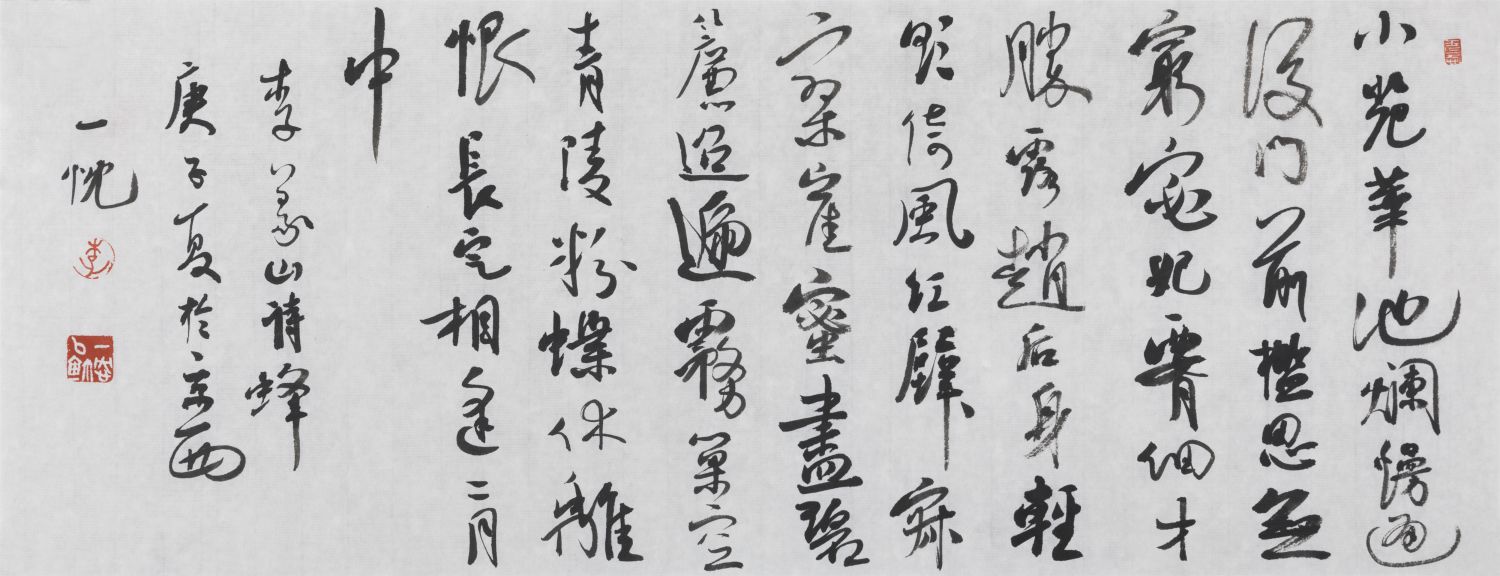 小苑華池爛慢通
後門前檻思無
窮宓妃腰細才
勝露趙后身輕
欲倚風紅壁寂
寥崖蜜盡碧
簾迢遞霧巢空
青陵粉蝶休離
恨長定相逢二月
中
李義山詩蜂
庚子夏於京西
一忱
李